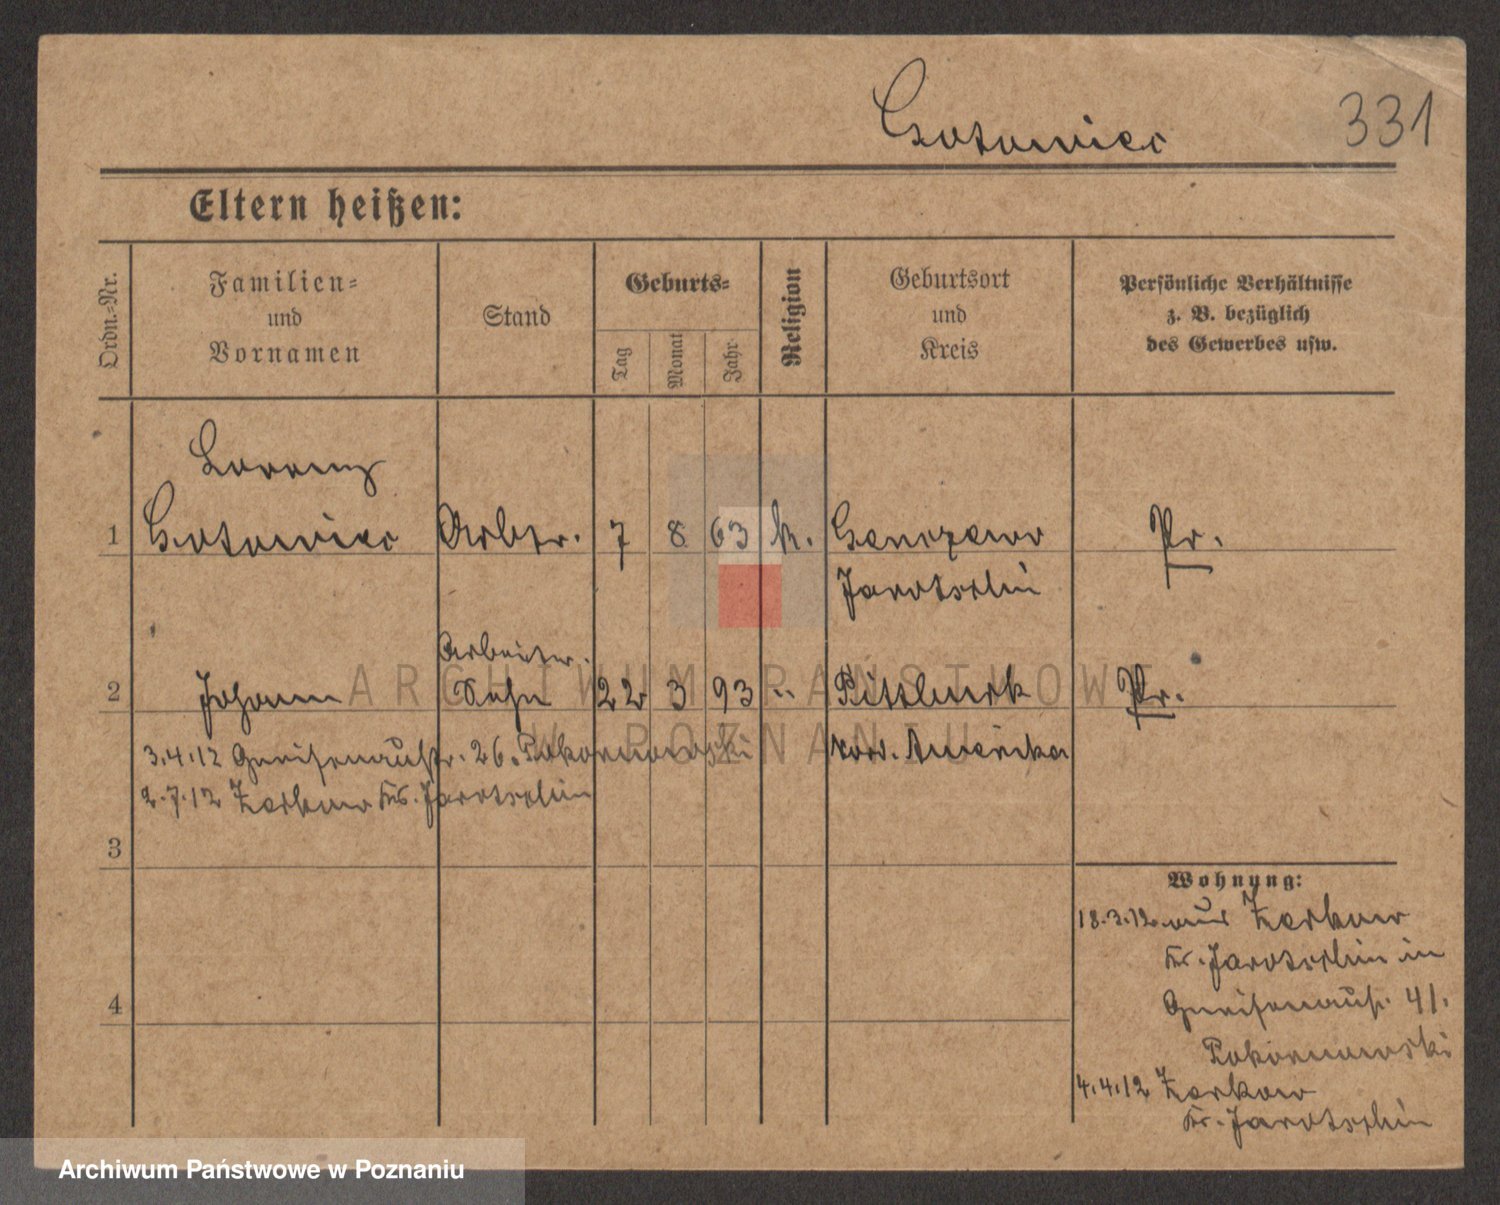 331
Eltern heißen:
Ordn.-Nr.
Familien-
und
Vornamen
Stand
Geburts-
Tag
Monat
Jahr
Religion
Geburtsort
und
Kreis
Persönliche Verhältnisse
z. B. bezüglich
des Gewerbes usw.
Lorenz
1 Arbtr. 7 8 63 k. Pr.
Jarotschin
Arbeiter.
2 Johann Sohn 22 3 93 " Pittsburk Pr.
3.4.12 Gneisenaustr. 26. Pokornowski
Nord. Amerika
2.7.12 Zerkow Krs. Jarotschin
3
Wohnung:
18.3.12 aus Zerkow
Kr. Jarotschin in
Gneisenaustr. 41.
Pokornowski
4
4.4.12 Zerkow
Kr. Jarotschin
ARCHIWUM PAŃSTWOWE
W POZNANIU
Archiwum Państwowe w Poznaniu